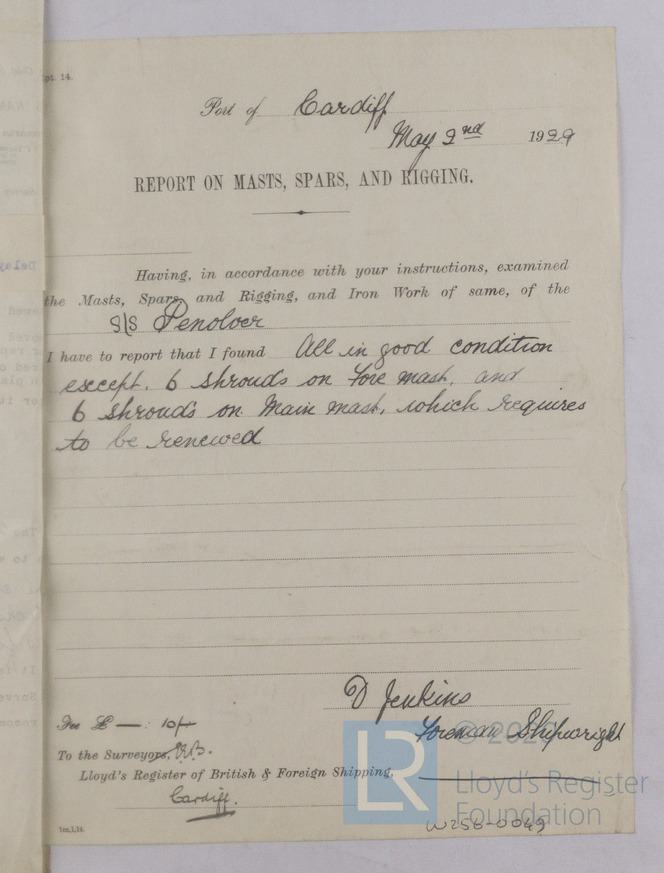 pt. 14.
Port of Cardiff
May 2nd 1929
REPORT ON MASTS, SPARS, AND RIGGING.
Having, in accordance with your instructions, examined
the Masts, Spars, and Rigging, and Iron Work of same, of the
S/S Penolver
I have to report that I found All in good condition
except. 6 shrouds on Fore mast, and
6 shrouds on Main mast, which requires
to be renewed
D Jenkins
Fee £ —: 10/-
Foreman Shipwright
To the Surveyors,
Lloyd's Register of British & Foreign Shipping,
Cardiff.
W256-0049
1m,1,14.
LR
Lloyd's Register
Foundation